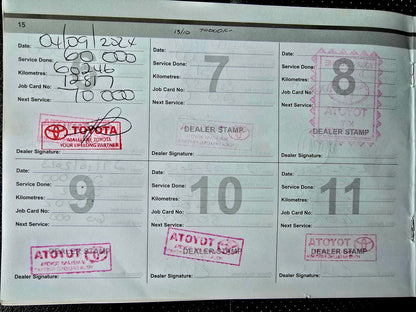 15
13/10
Date: 04/09/2024
Service Done: 60 000
Kilometres: 60246
Job Card No:
Next Service: 10 000
TOYOTA
YOUR LIFELONG PARTNER
Dealer Signature:
Date:
Service Done:
Kilometres:
Job Card No:
Next Service:
7
DEALER STAMP
Dealer Signature:
Date:
Service Done:
Kilometres:
Job Card No:
Next Service:
8
DEALER STAMP
Dealer Signature:
Date:
Service Done:
Kilometres:
Job Card No:
Next Service:
9
DEALER STAMP
Dealer Signature:
Date:
Service Done:
Kilometres:
Job Card No:
Next Service:
10
DEALER STAMP
Dealer Signature:
Date:
Service Done:
Kilometres:
Job Card No:
Next Service:
11
DEALER STAMP
Dealer Signature: